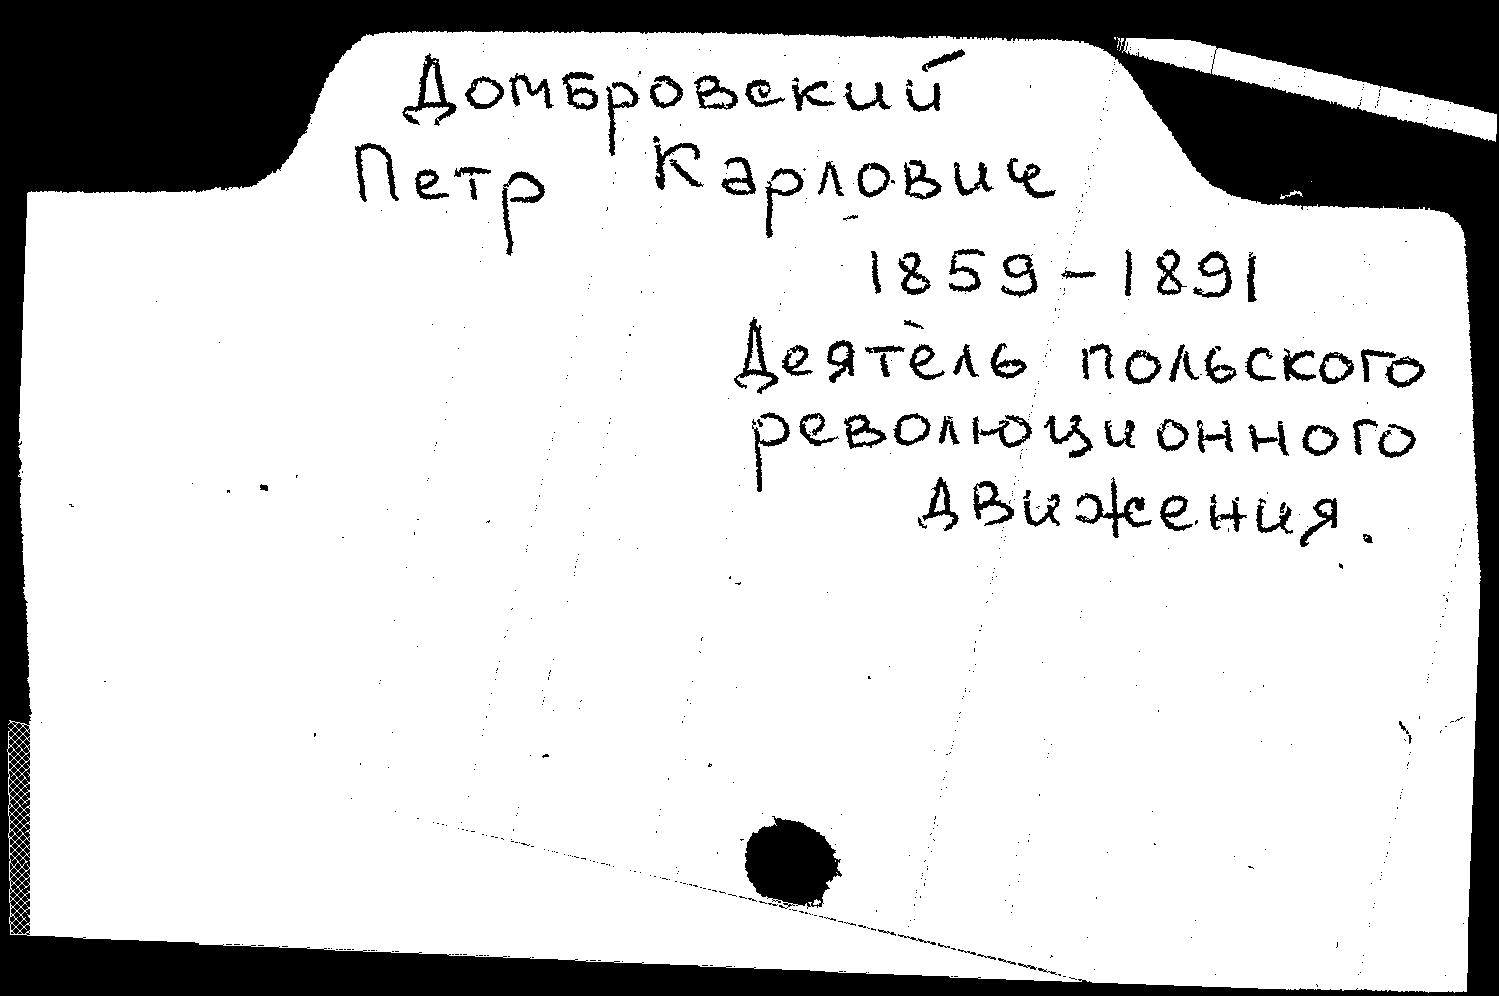 Домбровский
Петр Карлович
1859-1891
Деятель польского
революционного
движения.